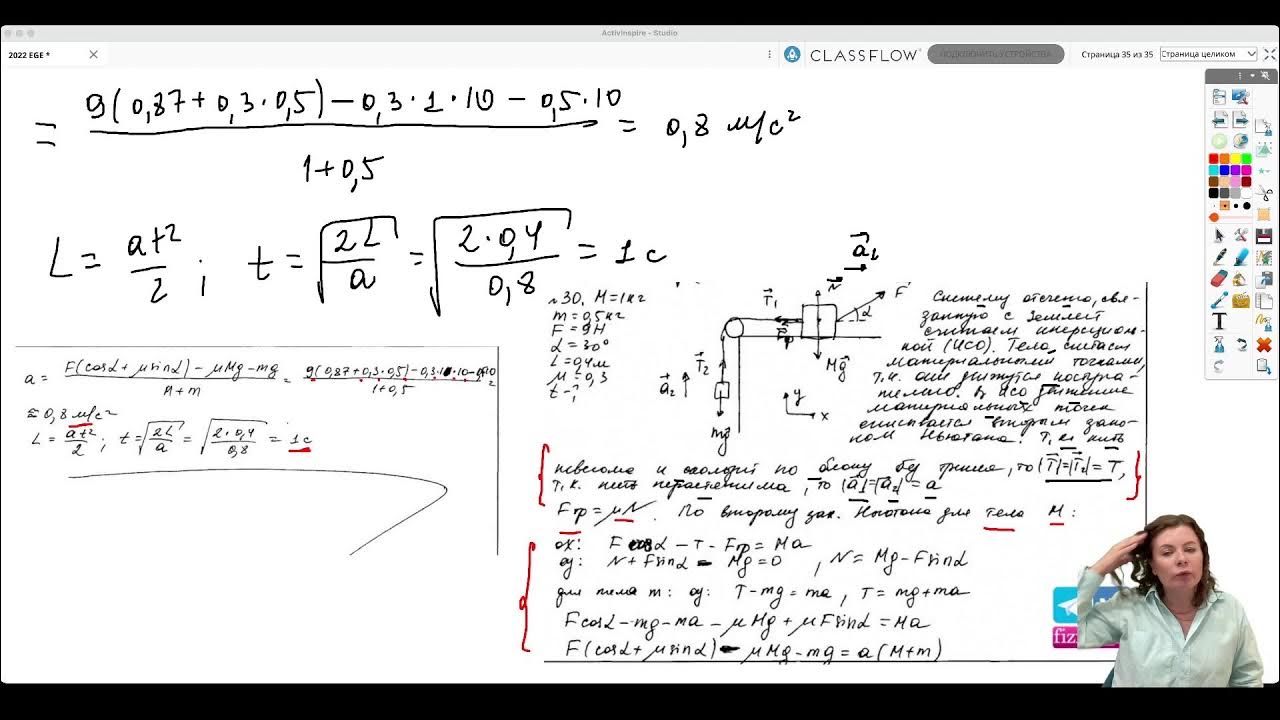 ActivInspire - Studio
2022 EGE *
CLASSFLOW
ПОДКЛЮЧИТЬ УСТРОЙСТВА
Страница 35 из 35
Страница целиком
= 9(0,87+0,3·0,5)−0,3·1·10−0,5·10 / 1+0,5 = 0,8 м/с²
L = at²/2 ; t = √(2L/a) = √(2·0,4/0,8) = 1 с
a = F(cosα+μsinα)−μMg−mg / M+m = 9(0,87+0,3·0,5)−0,3·1·10−0,5·10 / 1+0,5 =
≈ 0,8 м/с²
L = at²/2 ; t = √(2L/a) = √(2·0,4/0,8) = 1 с
№30. M=1кг
m=0,5кг
F=9Н
α=30°
L=0,4м
μ=0,3
t-?
T₁
N
a₁
F
α
Fтр
Mg
T₂
a₂
mg
y
x
Систему отсчета, свя-
занную с Землей
считаем инерциаль-
ной (ИСО). Тела считаем
материальными точками,
т.к. они движутся поступа-
тельно. В ИСО движение
материальных точек
описывается вторым зако-
ном Ньютона. Т.к. нить
невесома и скользит по блоку без трения, то |T₁|=|T₂|=T,
т.к. нить нерастяжима, то |a₁|=|a₂|=a
Fтр=μN. По второму зак. Ньютона для тела M:
ox: Fcosα−T−Fтр=Ma
oy: N+Fsinα−Mg=0, N=Mg−Fsinα
для тела m: oy: T−mg=ma, T=mg+ma
Fcosα−mg−ma−μMg+μFsinα=Ma
F(cosα+μsinα)−μMg−mg=a(M+m)
fizi